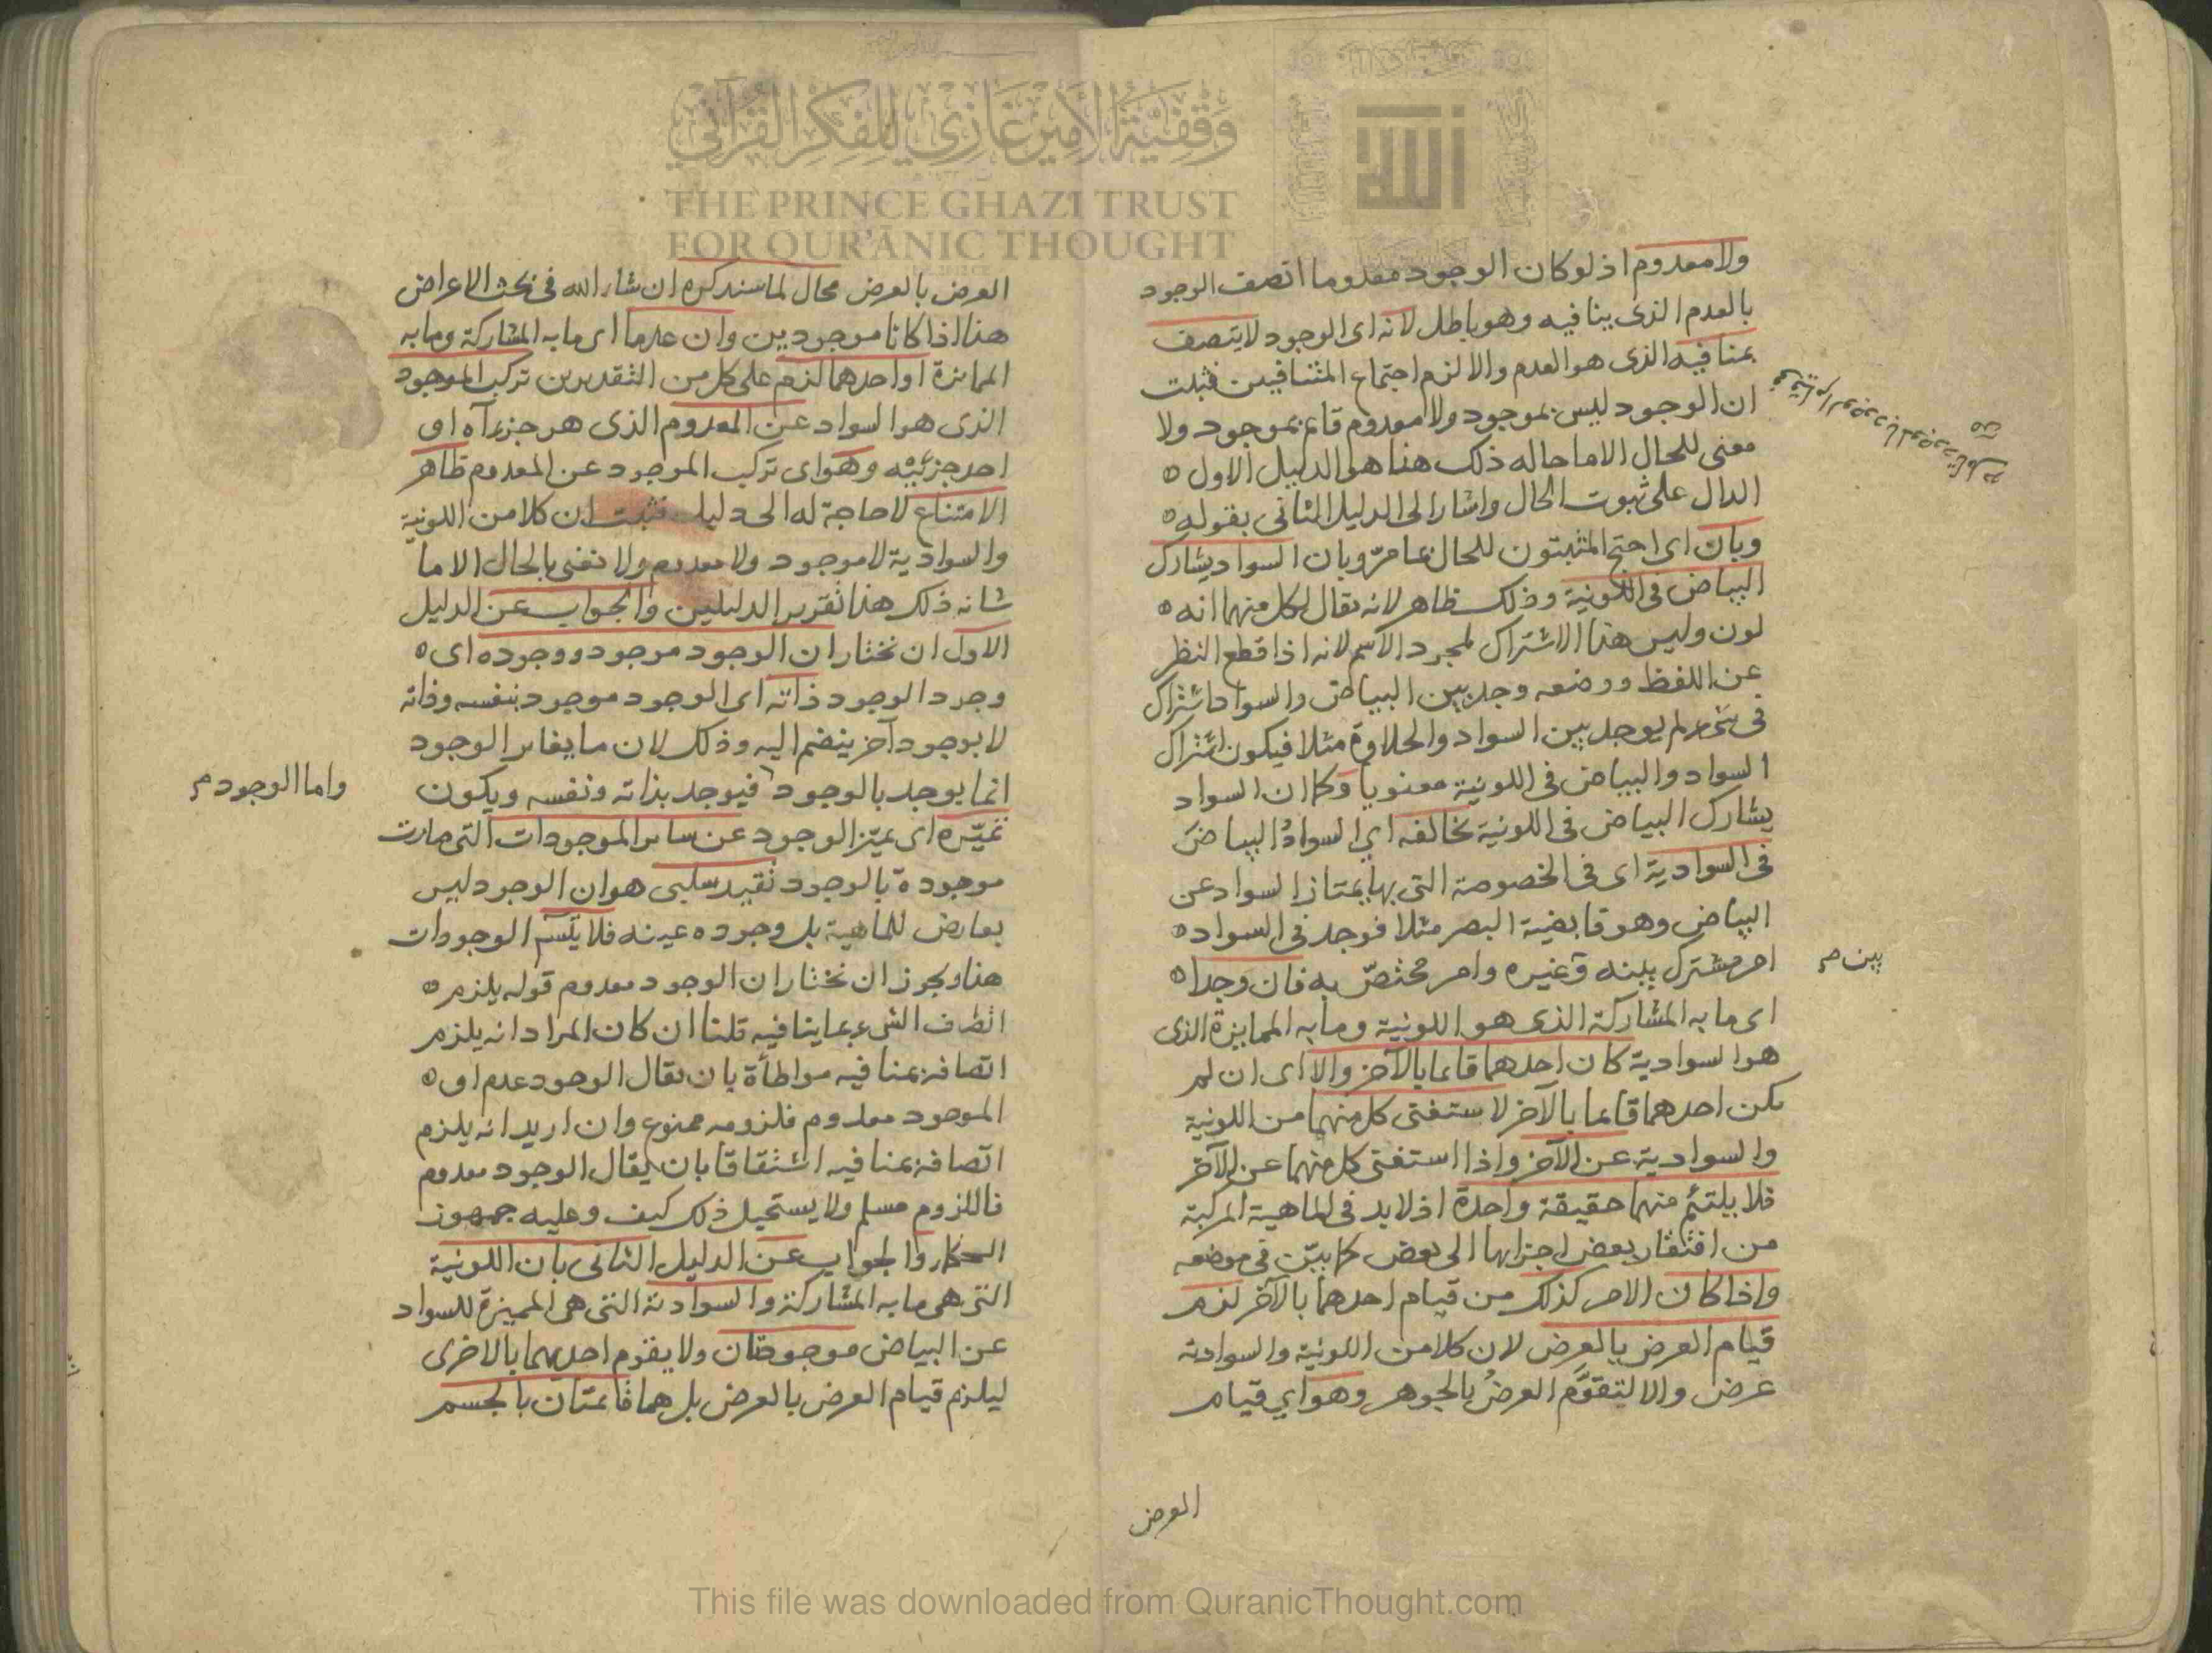 وقفية الأمير غازي للفكر القرآني
THE PRINCE GHAZI TRUST
FOR QUR'ĀNIC THOUGHT
ولا معدوم اذ لو كان الوجود معدوما اتصف الوجود
بالعدم الذى ينافيه وهو باطل لانه اى الوجود لا يتصف
بمنافيه الذى هو العدم والا لزم اجتماع المتنافيين فثبت
ان الوجود ليس بموجود ولا معدوم قائم بموجود ولا
معنى للحال الا ما حاله ذلك هذا هو الدليل الاول
الدال على ثبوت الحال واشار الى الدليل الثانى بقوله
وبان اى احتج المثبتون للحال بما مرّ وبان السواد يشارك
البياض فى اللونية وذلك ظاهر لانه يقال لكل منهما انه
لون وليس هذا الاشتراك لمجرد الاسم لانه اذا قطع النظر
عن اللفظ ووضعه وجد بين البياض والسواد اشتراك
فى شىء لم يوجد بين السواد والحلاوة مثلا فيكون اشتراك
السواد والبياض فى اللونية معنويا وكما ان السواد
يشارك البياض فى اللونية يخالفه اي السوادُ البياضَ
فى السوادية اى فى الخصوصة التى بها يمتاز السواد عن
البياض وهو قابضية البصر مثلا فوجد فى السواد
امر مشترك بينه وغيره وامر مختصّ به فان وجدا
بين م
اى ما به المشاركة الذى هو اللونية وما به الممايزة الذى
هو السوادية كان احدهما قائما بالآخر والا اى ان لم
يكن احدهما قائما بالآخر لاستغنى كل منهما من اللونية
والسوادية عن الآخر واذا استغنى كل منهما عن الآخر
فلا يلتئم منهما حقيقة واحدة اذ لا بد فى الماهية المركبة
من افتقار بعض اجزائها الى بعض كما بيّن فى موضعه
واذا كان الامر كذلك من قيام احدهما بالآخر لزم
قيام العرض بالعرض لان كلا من اللونية والسوادية
عرض والا لتقوَّم العرضُ بالجوهر وهو اي قيام
العرض
العرض بالعرض محال لما سنذكره ان شاء الله فى بحث الاعراض
هذا اذا كانا موجودين وان عدما اى ما به المشاركة وما به
الممايزة او احدهما لزم على كل من التقديرين تركب الموجود
الذى هو السواد عن المعدوم الذى هو جزءآه او
احد جزئيه وهو اى تركب الموجود عن المعدوم ظاهر
الامتناع لا حاجة له الى دليل فثبت ان كلا من اللونية
والسوادية لا موجود ولا معدوم ولا نعنى بالحال الا ما
شانه ذلك هذا تقرير الدليلين والجواب عن الدليل
الاول ان نختار ان الوجود موجود ووجوده اى
وجود الوجود ذاته اى الوجود موجود بنفسه وذاته
لا بوجود آخر ينضم اليه وذلك لان ما يغاير الوجود
انما يوجد بالوجود فيوجد بذاته ونفسه ويكون
واما الوجود م
تميّزه اى تميّز الوجود عن سائر الموجودات التى صارت
موجودة بالوجود بقيد سلبى هو ان الوجود ليس
بعارض للماهية بل وجوده عينه فلا يتسم الوجودات
هذا ويجوز ان نختار ان الوجود معدوم قوله يلزم
اتصاف الشىء بما ينافيه قلنا ان كان المراد انه يلزم
اتصافه بمنافيه مواطأة بان يقال الوجود عدم او
الموجود معدوم فلزومه ممنوع وان اريد انه يلزم
اتصافه بمنافيه اشتقاقا بان يقال الوجود معدوم
فاللزوم مسلم ولا يستحيل ذلك كيف وعليه جمهور
الحكماء والجواب عن الدليل الثانى بان اللونية
التى هى ما به المشاركة والسوادية التى هى المميزة للسواد
عن البياض موجودتان ولا يقوم احديهما بالاخرى
ليلزم قيام العرض بالعرض بل هما قائمتان بالجسم
This file was downloaded from QuranicThought.com